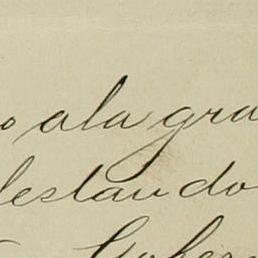 o a la gra
lestando
Gober